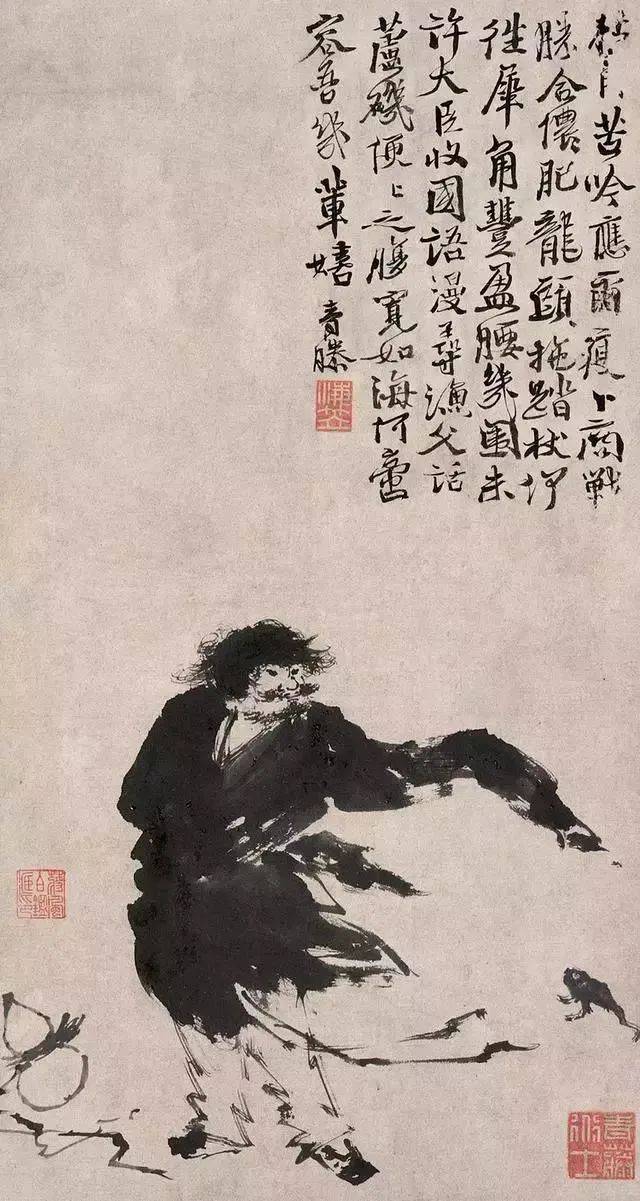 苦吟應爾瘦卜商戰
勝合儂肥龍頭拖踏杖伊
犀角豐盈腰幾圍未
許大臣收國語漫尋漁父話
蘆磯便〻之腹寬如海何啻
容吾幾輩嬉 青藤